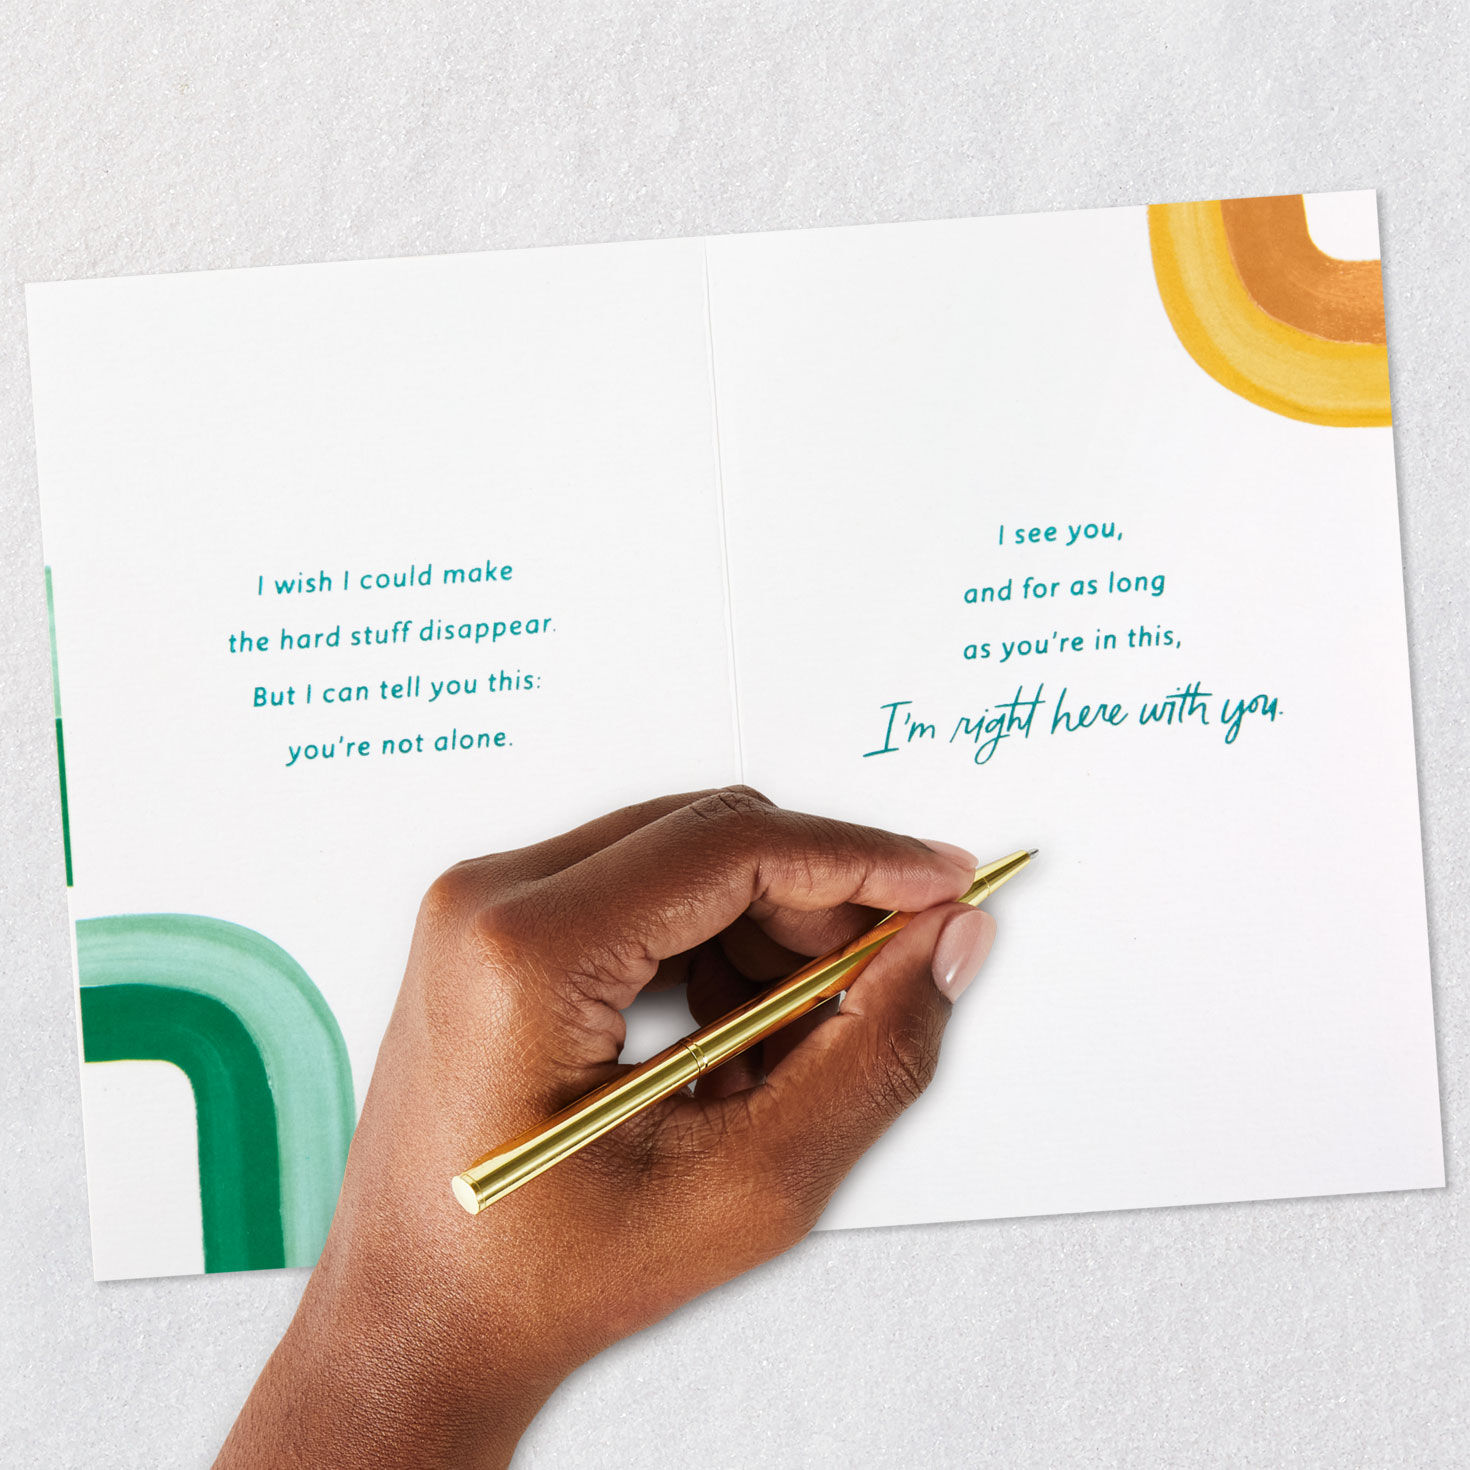 I wish I could make
the hard stuff disappear.
But I can tell you this:
you're not alone.
I see you,
and for as long
as you're in this,
I'm right here with you.